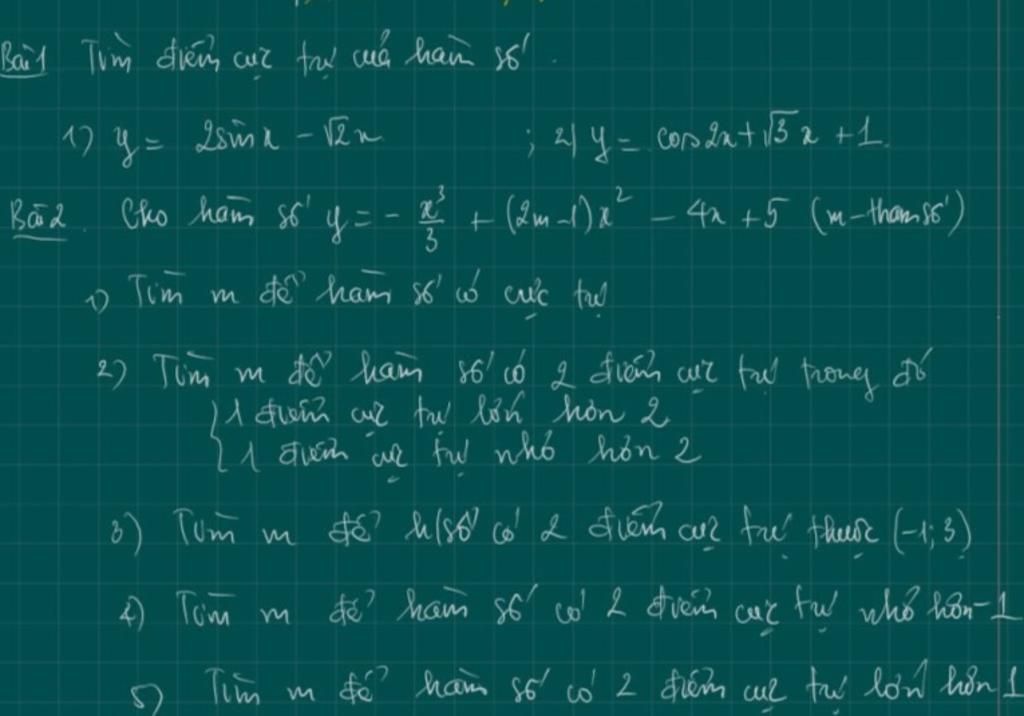 Bài 1 Tìm điểm cực trị của hàm số.
1) y = 2sinx - √2x ; 2) y = cos2x + √3x + 1.
Bài 2. Cho hàm số y = - x³/3 + (2m-1)x² - 4x + 5 (m-tham số)
1) Tìm m để hàm số có cực trị
2) Tìm m để hàm số có 2 điểm cực trị trong đó
{ 1 điểm cực trị lớn hơn 2
1 điểm cực trị nhỏ hơn 2
3) Tìm m để h/số có 2 điểm cực trị thuộc (-1; 3)
4) Tìm m để hàm số có 2 điểm cực trị nhỏ hơn -1
5) Tìm m để hàm số có 2 điểm cực trị lớn hơn 1